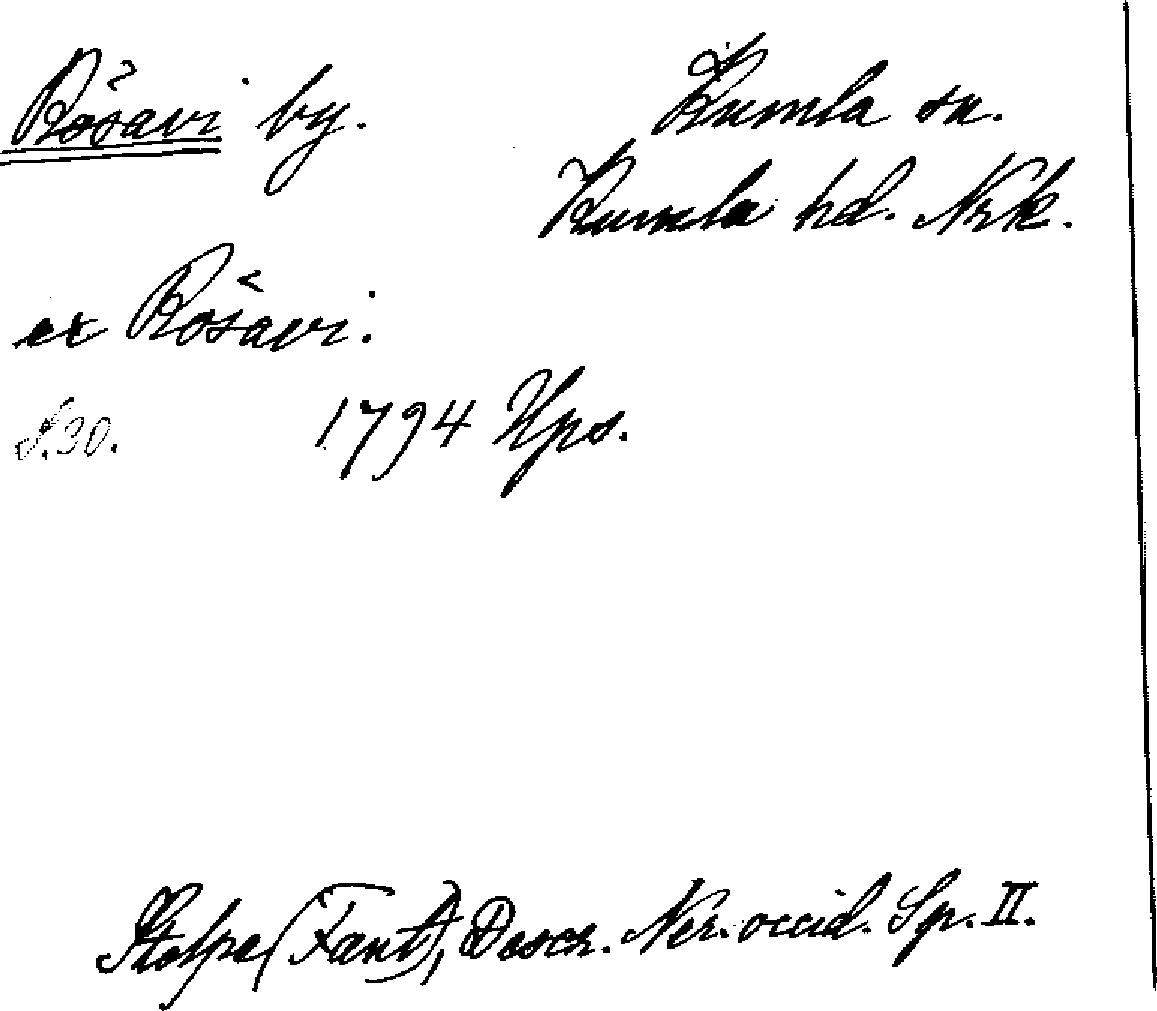 Rösavi by. Kumla sn.
Kumla hd. Nrk.
ex Rösavi.
S. 30. 1794 Ups.
Stolpe (Fant), Descr. Ner. occid. Sp. II.